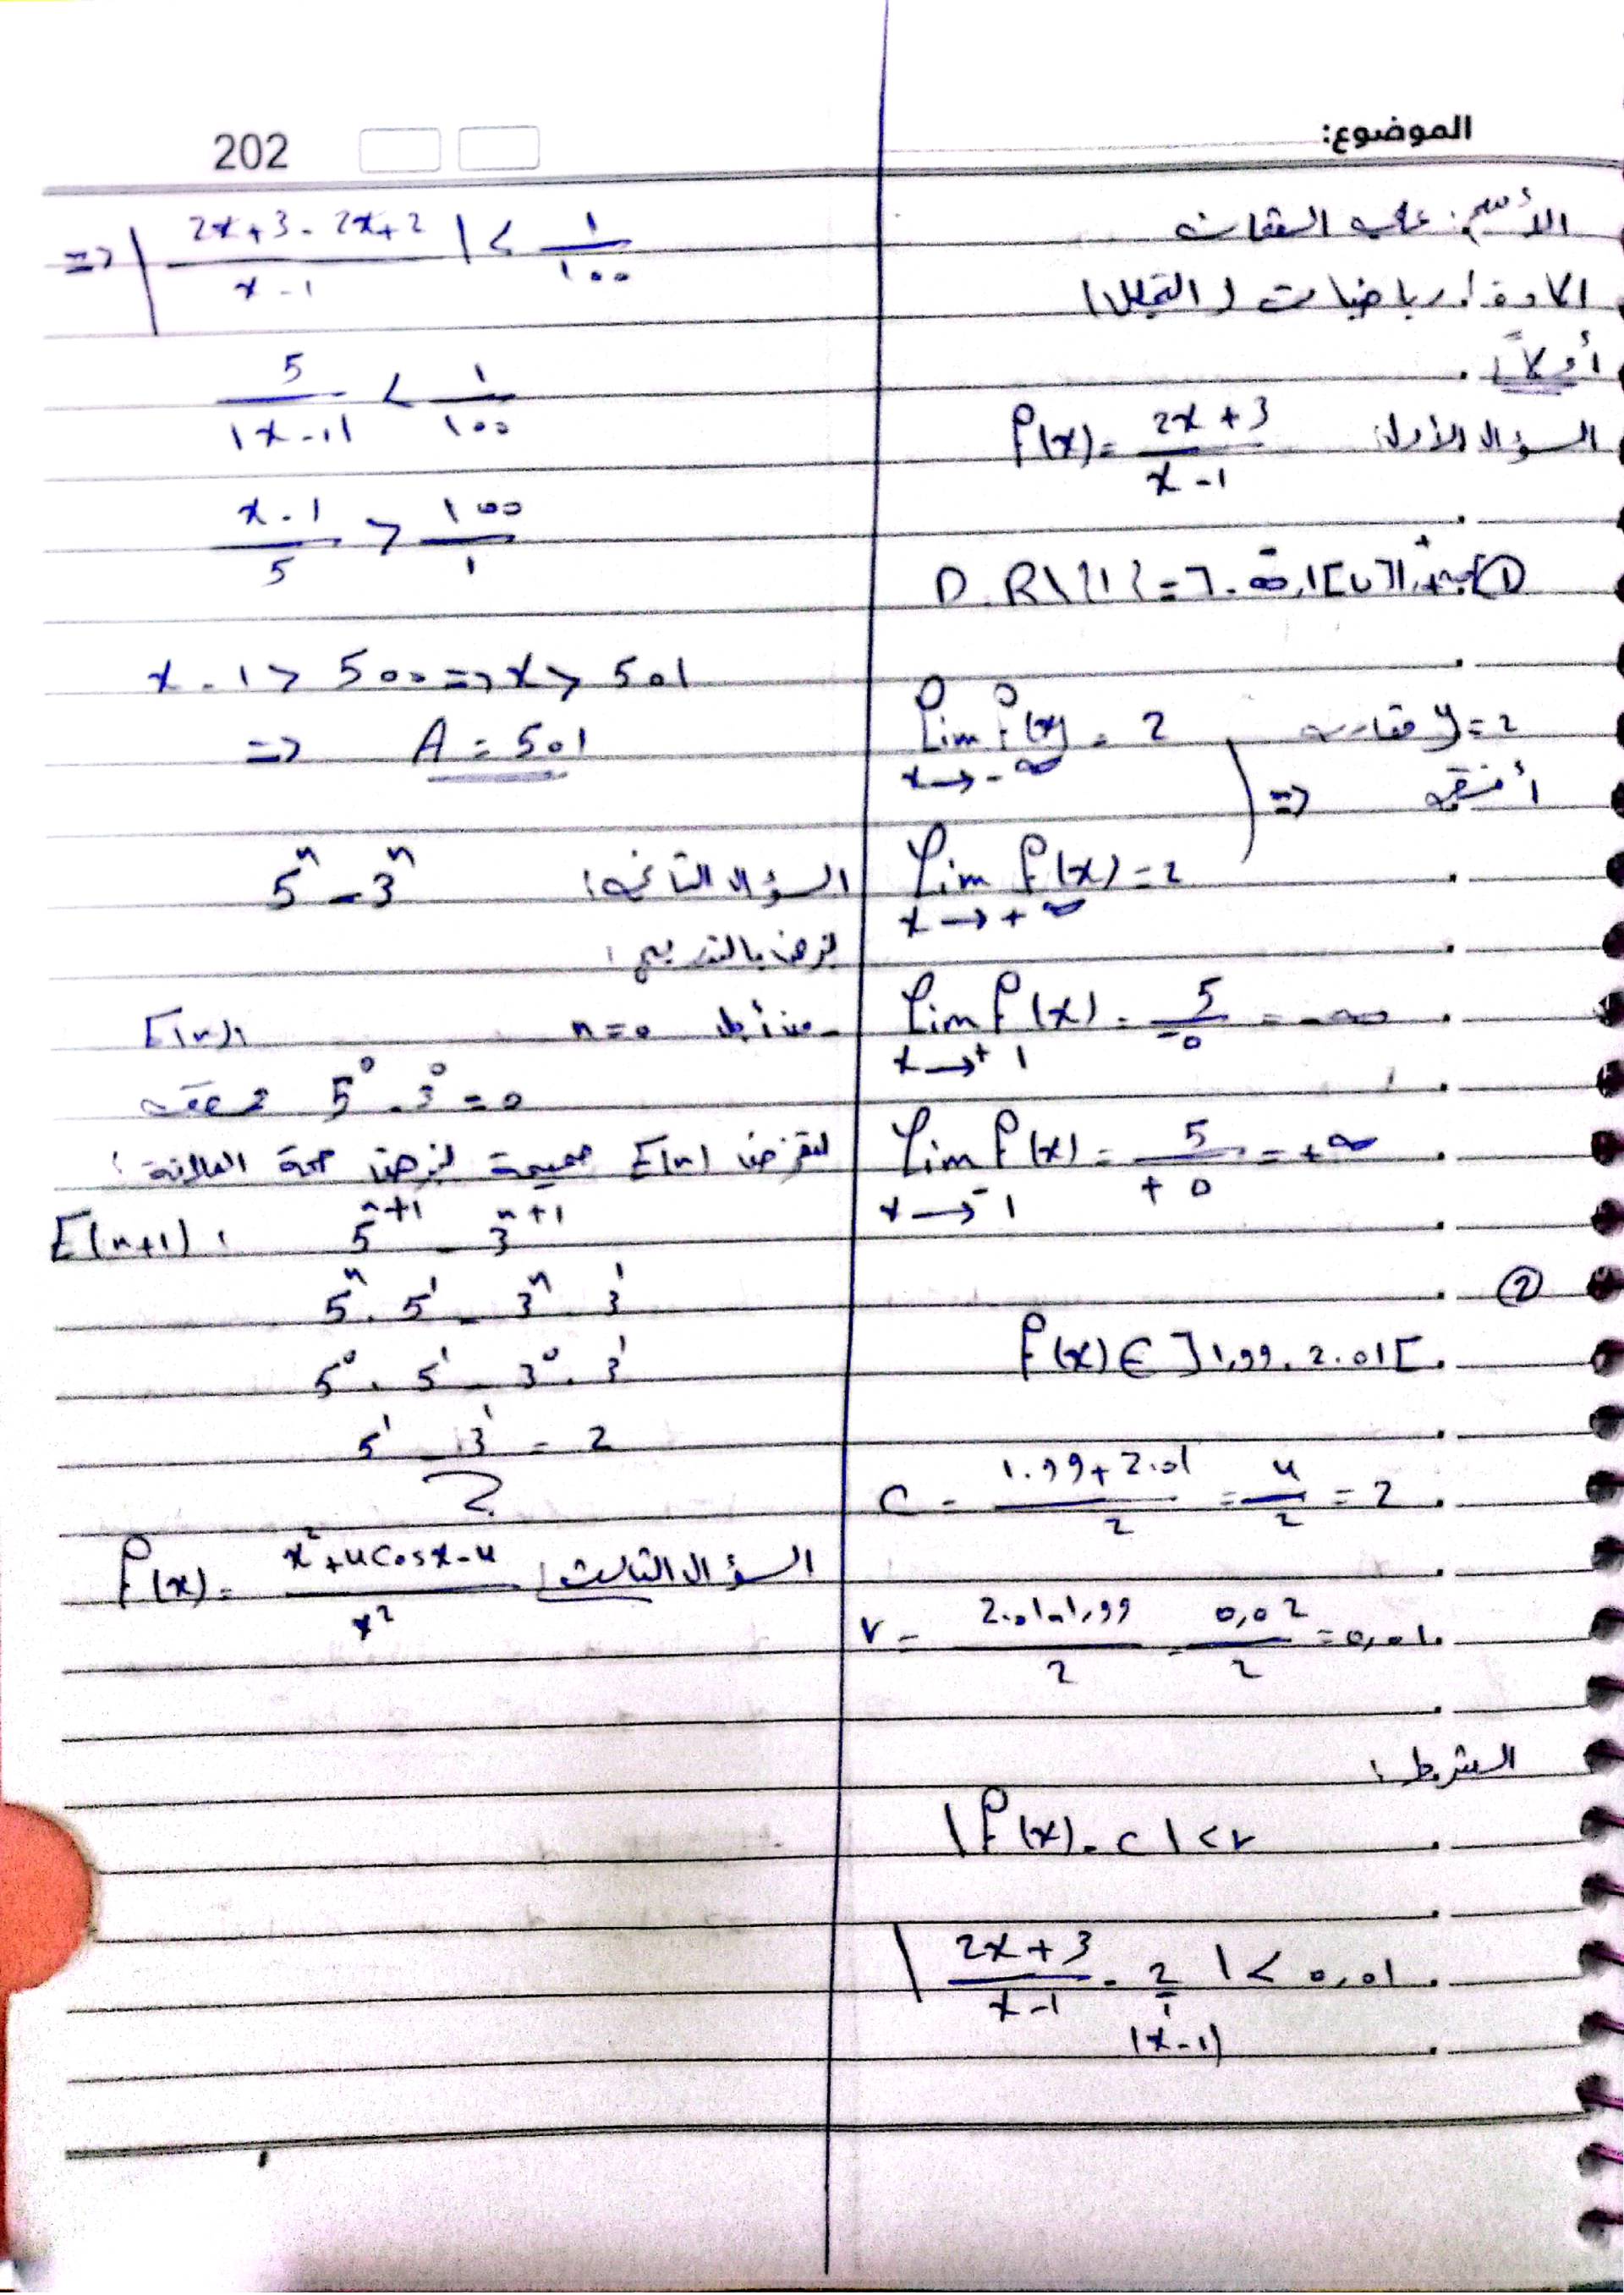 الموضوع:
202
الأسم: علي
المادة: رياضيات (التحليل)
أولاً:
السؤال الأول: f(x) = \frac{2x+3}{x-1}
① D = R\{1} = ]-∞, 1[ ∪ ]1, +∞[
lim f(x) = 2
x → -∞
y = 2 مقارب
=> أفقي
lim f(x) = 2
x → +∞
lim f(x) = \frac{5}{-0} = -∞
x →+ 1
lim f(x) = \frac{5}{+0} = +∞
x →- 1
②
f(x) ∈ ]1,99 , 2.01[
c = \frac{1.99+2.01}{2} = \frac{4}{2} = 2
r = \frac{2.01-1,99}{2} = \frac{0,02}{2} = 0,01
الشرط:
|f(x) - c| < r
|\frac{2x+3}{x-1} - \frac{2}{1}| < 0,01
(x-1)
=> |\frac{2x+3-2x+2}{x-1}| < \frac{1}{100}
\frac{5}{|x-1|} < \frac{1}{100}
\frac{x-1}{5} > \frac{100}{1}
x-1 > 500 => x > 501
=> A = 501
السؤال الثاني: 5^n - 3^n
لنبرهن بالتدريج:
من أجل n=0 E(n):
5^0 - 3^0 = 0 محققة
لنفرض E(n) صحيحة لنبرهن صحة العلاقة:
E(n+1): 5^{n+1} - 3^{n+1}
5^n . 5^1 - 3^n . 3^1
5^0 . 5^1 - 3^0 . 3^1
5^1 - 3^1 = 2
2
السؤال الثالث: f(x) = \frac{x^2+4cosx-4}{x^2}